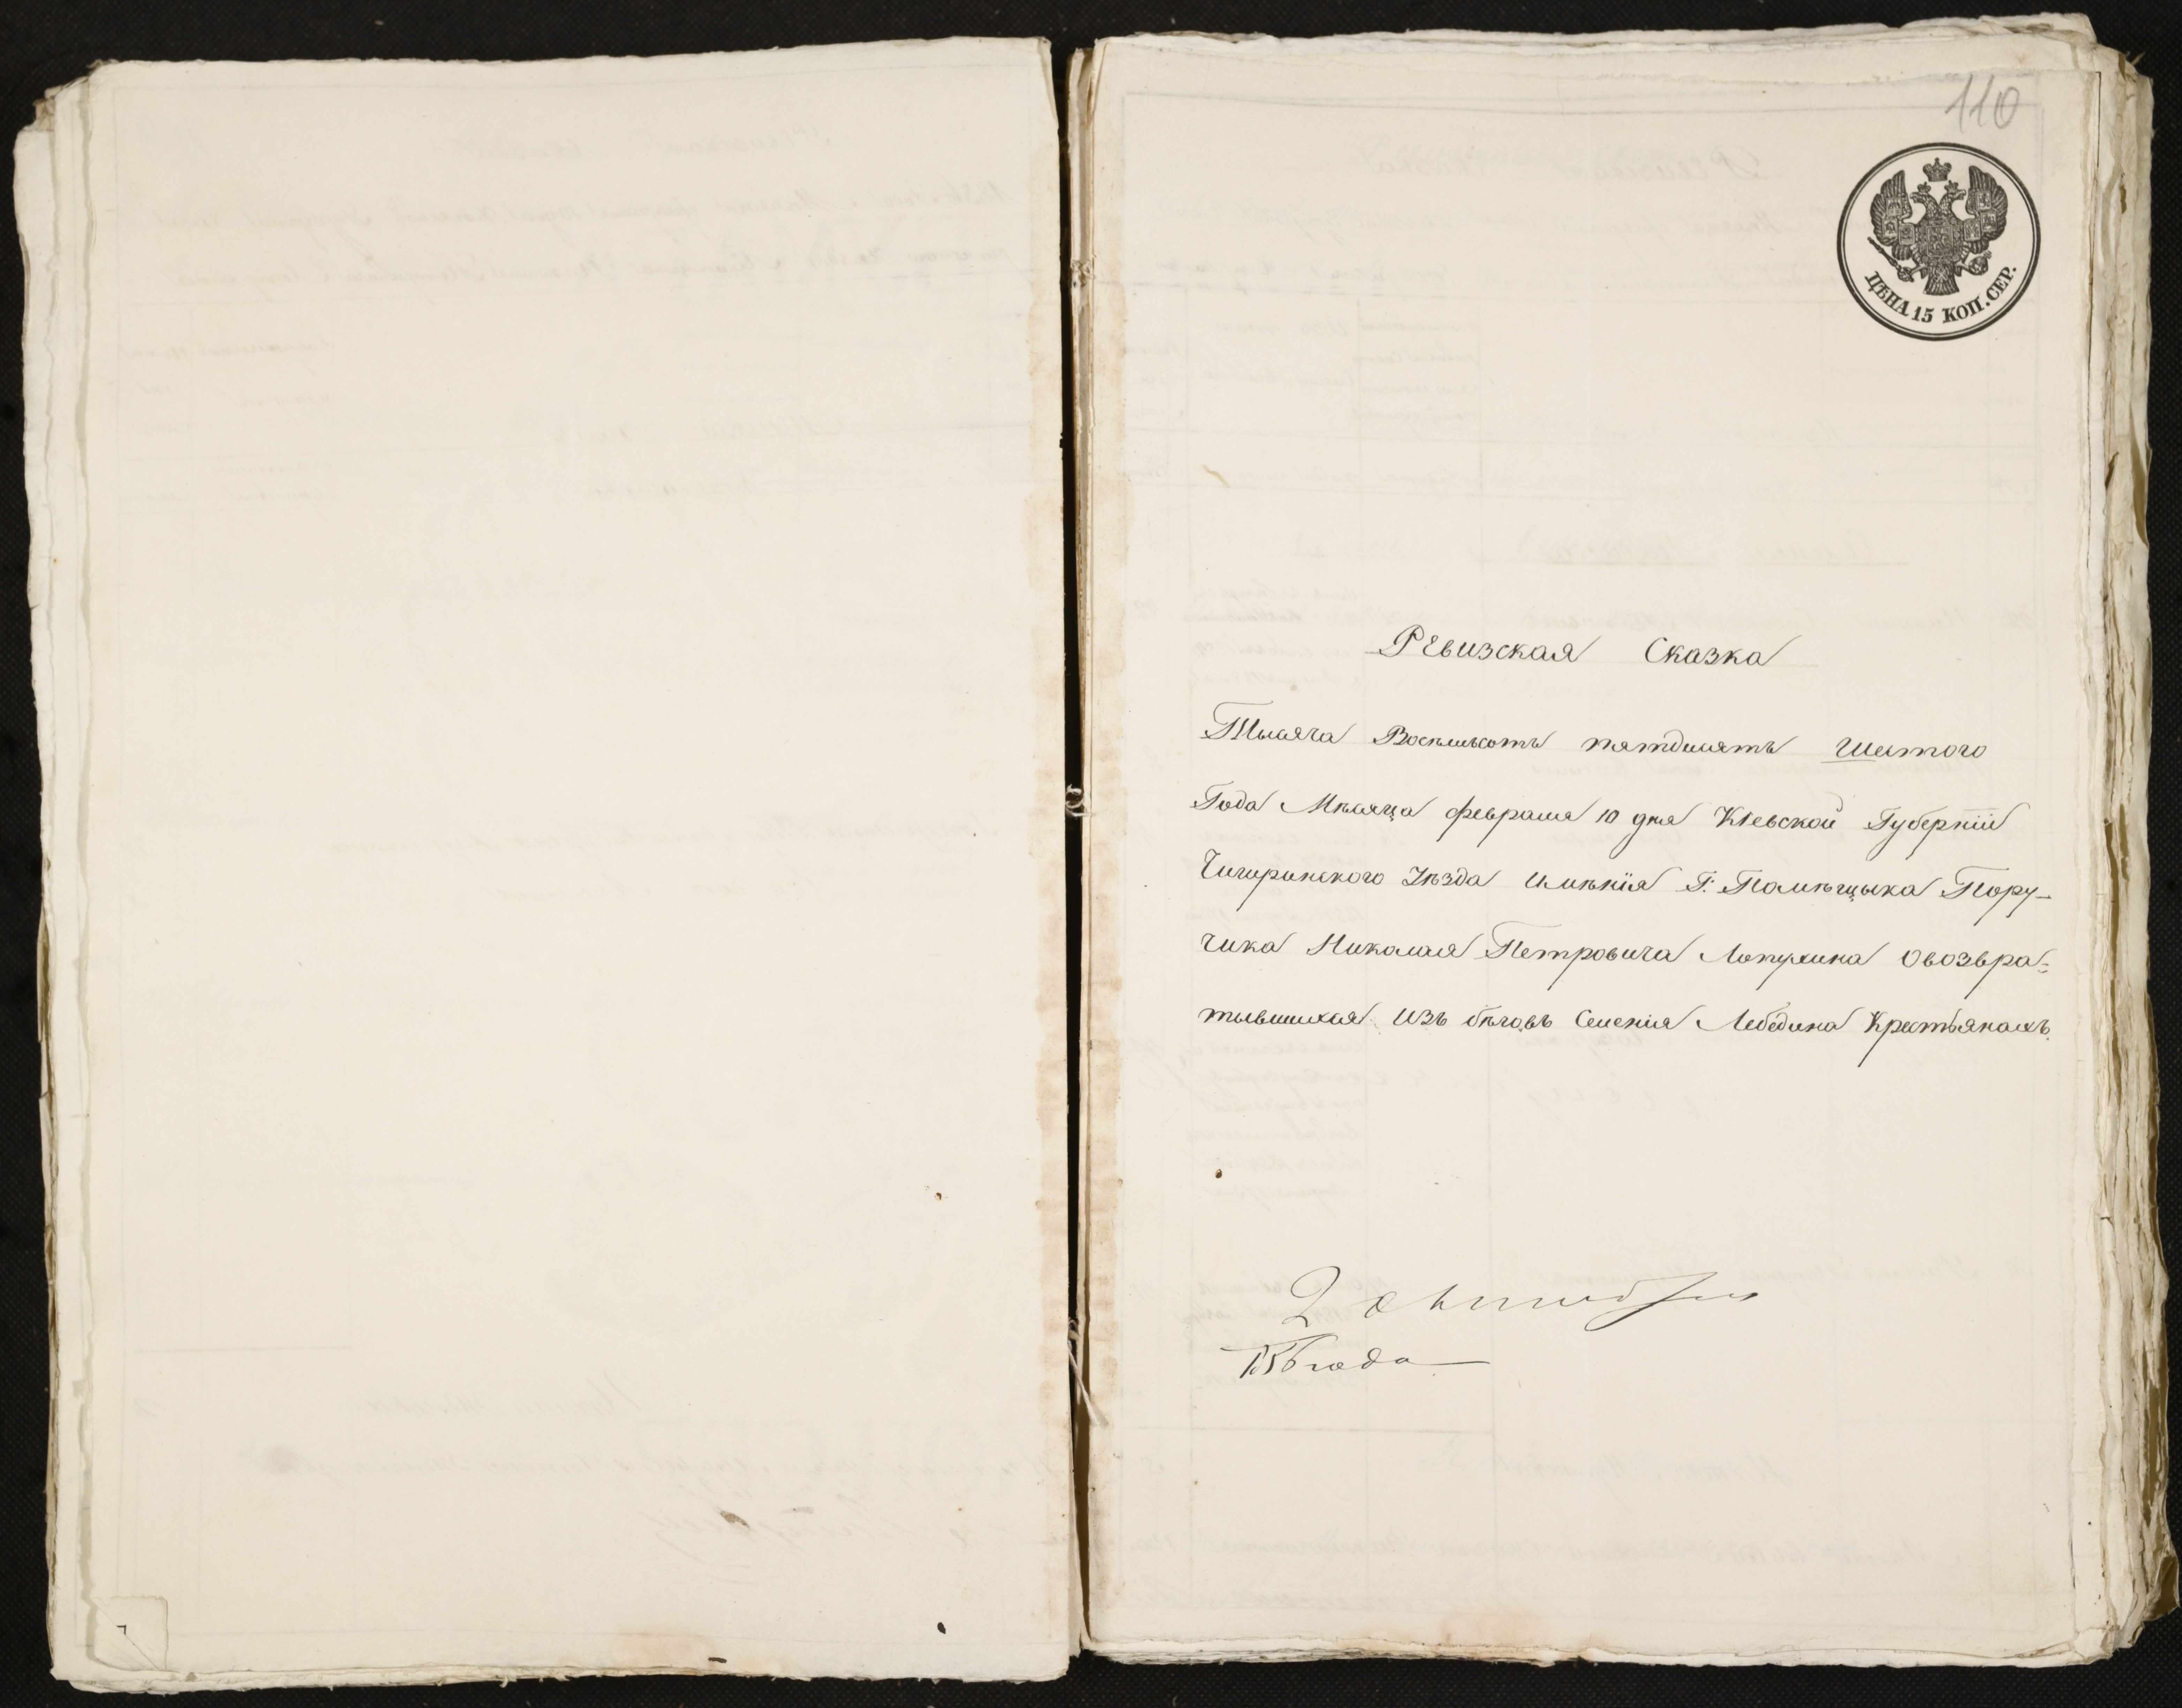 110
ЦѢНА 15 КОП. СЕР.
Ревизская Сказка
Тысяча Восемьсотъ пятдисятъ шестого
Года Мѣсяца февраля 10 дня Кіевской Губерніи
Чигиринского Уѣзда имѣнія Г: Помѣщыка Пору-
чика Николая Петровича Лопухина Овозвра-
тывшихся изъ бѣговъ Селенія Лебедина Крестьянахъ.
года